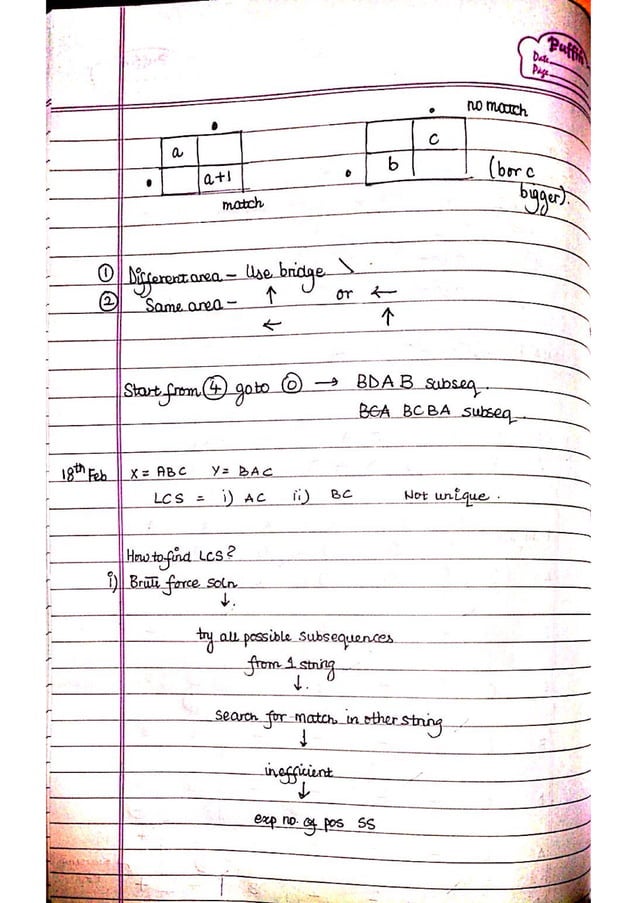 Puffin
Date
Page
no match
a
a+1
match
c
b
(b or c
bigger).
① Different area - Use bridge ↘
② Same area - ↑ or ←
← ↑
Start from ④ go to ⓪ → BDAB subseq.
BCBA subseq.
18th Feb X = ABC Y = BAC
LCS = i) AC ii) BC Not unique.
How to find LCS?
i) Brute force soln
↓.
try all possible subsequences
from 1 string
↓.
search for match in other string
↓
inefficient
↓
exp no. of pos SS